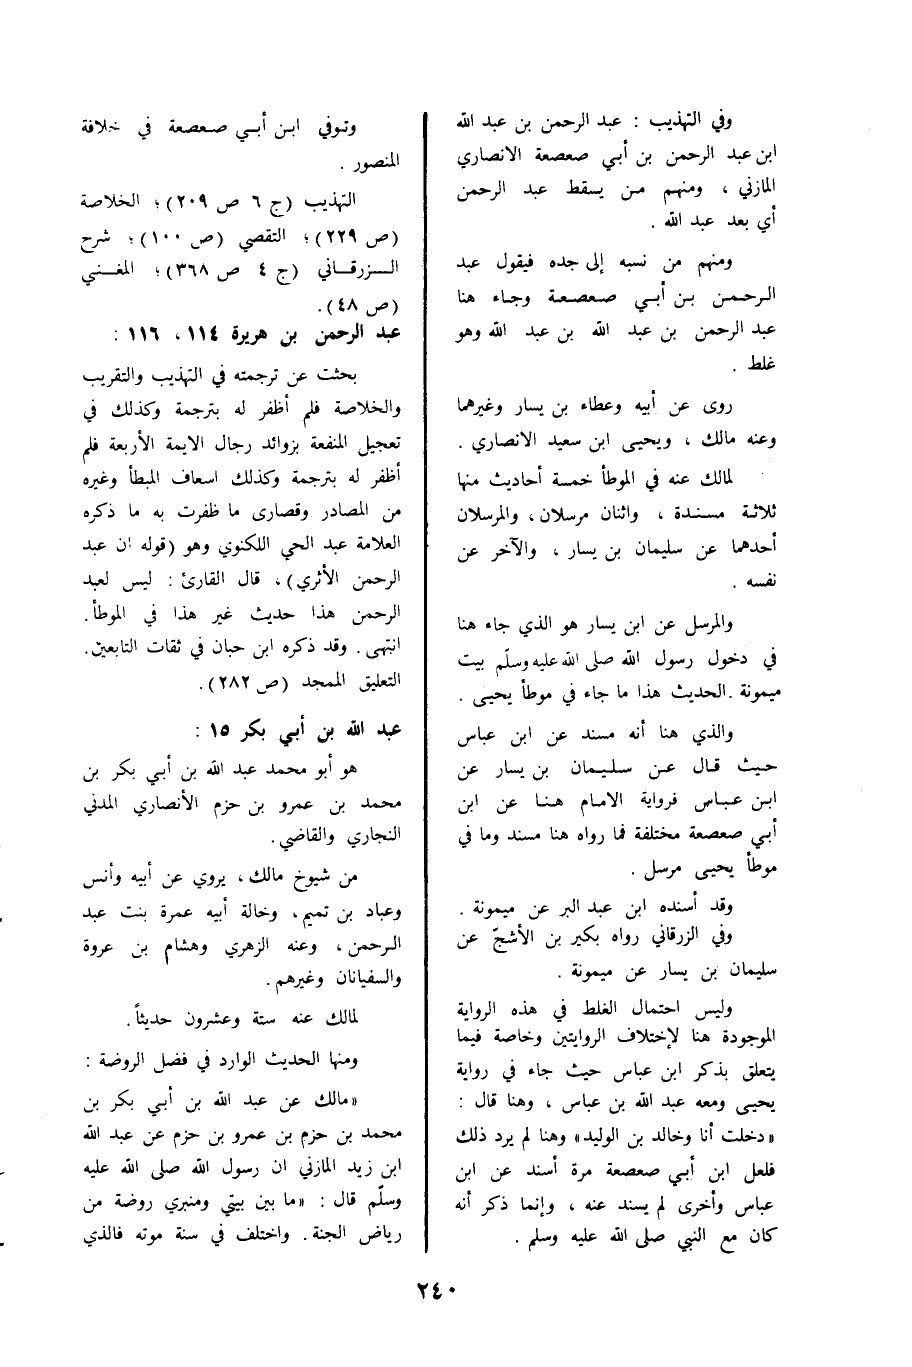 وفي التهذيب : عبد الرحمن بن عبد الله
ابن عبد الرحمن بن أبي صعصعة الانصاري
المازني ، ومنهم من يسقط عبد الرحمن
أي بعد عبد الله .
ومنهم من نسبه إلى جده فيقول عبد
الرحمن بن أبي صعصعة وجاء هنا
عبد الرحمن بن عبد الله بن عبد الله وهو
غلط .
روى عن أبيه وعطاء بن يسار وغيرهما
وعنه مالك ، ويحيى ابن سعيد الانصاري .
لمالك عنه في الموطأ خمسة أحاديث منها
ثلاثة مسندة ، واثنان مرسلان، والمرسلان
أحدهما عن سليمان بن يسار ، والآخر عن
نفسه .
والمرسل عن ابن يسار هو الذي جاء هنا
في دخول رسول الله صلى الله عليه وسلّم بيت
ميمونة .الحديث هذا ما جاء في موطأ يحيى .
والذي هنا أنه مسند عن ابن عباس
حيث قال عن سليمان بن يسار عن
ابن عباس فرواية الامام هنا عن ابن
أبي صعصعة مختلفة فما رواه هنا مسند وما في
موطأ يحيى مرسل .
وقد أسنده ابن عبد البر عن ميمونة .
وفي الزرقاني رواه بكير بن الأشجّ عن
سليمان بن يسار عن ميمونة .
وليس احتمال الغلط في هذه الرواية
الموجودة هنا لإختلاف الروايتين وخاصة فيما
يتعلق بذكر ابن عباس حيث جاء في رواية
يحيى ومعه عبد الله بن عباس ، وهنا قال :
«دخلت أنا وخالد بن الوليد» وهنا لم يرد ذلك
فلعل ابن أبي صعصعة مرة أسند عن ابن
عباس وأخرى لم يسند عنه ، وإنما ذكر أنه
كان مع النبي صلى الله عليه وسلم .
وتوفي ابن أبي صعصعة في خلافة
المنصور .
التهذيب (ج ٦ ص ٢٠٩)؛ الخلاصة
(ص ٢٢٩)؛ التقصي (ص ١٠٠)؛ شرح
الزرقاني (ج ٤ ص ٣٦٨)؛ المغني
(ص ٤٨).
عبد الرحمن بن هريرة ١١٤ ، ١١٦ :
بحثت عن ترجمته في التهذيب والتقريب
والخلاصة فلم أظفر له بترجمة وكذلك في
تعجيل المنفعة بزوائد رجال الايمة الأربعة فلم
أظفر له بترجمة وكذلك اسعاف المبطأ وغيره
من المصادر وقصارى ما ظفرت به ما ذكره
العلامة عبد الحي اللكنوي وهو (قوله ان عبد
الرحمن الأثري)، قال القارئ : ليس لعبد
الرحمن هذا حديث غير هذا في الموطأ.
انتهى. وقد ذكره ابن حبان في ثقات التابعين.
التعليق الممجد (ص ٢٨٢).
عبد الله بن أبي بكر ١٥ :
هو أبو محمد عبد الله بن أبي بكر بن
محمد بن عمرو بن حزم الأنصاري المدني
النجاري والقاضي.
من شيوخ مالك، يروي عن أبيه وأنس
وعباد بن تميم، وخالة أبيه عمرة بنت عبد
الرحمن، وعنه الزهري وهشام بن عروة
والسفيانان وغيرهم.
لمالك عنه ستة وعشرون حديثاً.
ومنها الحديث الوارد في فضل الروضة :
«مالك عن عبد الله بن أبي بكر بن
محمد بن حزم بن عمرو بن حزم عن عبد الله
ابن زيد المازني ان رسول الله صلى الله عليه
وسلّم قال : «ما بين بيتي ومنبري روضة من
رياض الجنة. واختلف في سنة موته فالذي
٢٤٠